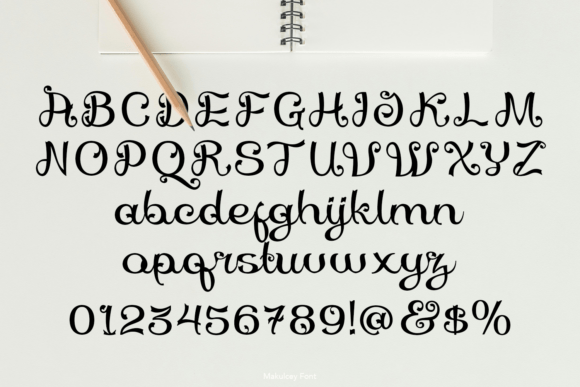 ABCDEFGHIJKLM
NOPQRSTUVWXYZ
abcdefghijklmn
opqrstuvwxyz
0123456789!@&$%
Maikulcey Font